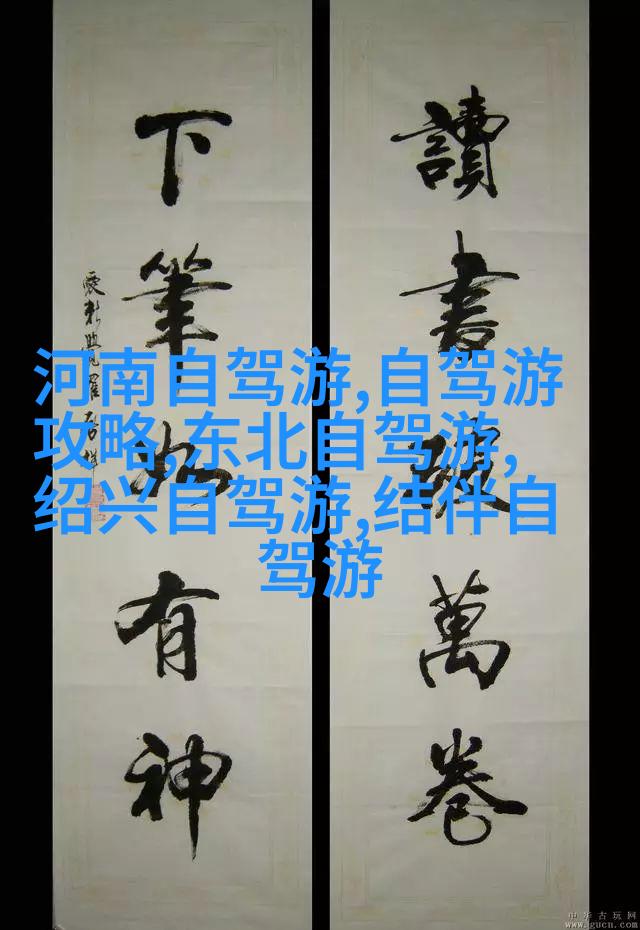 讀書破萬卷
下筆如有神
愛新覺羅
河南自驾游,自驾游
攻略,东北自驾游,
绍兴自驾游,结伴自
驾游
中华古玩网
www.gucn.com